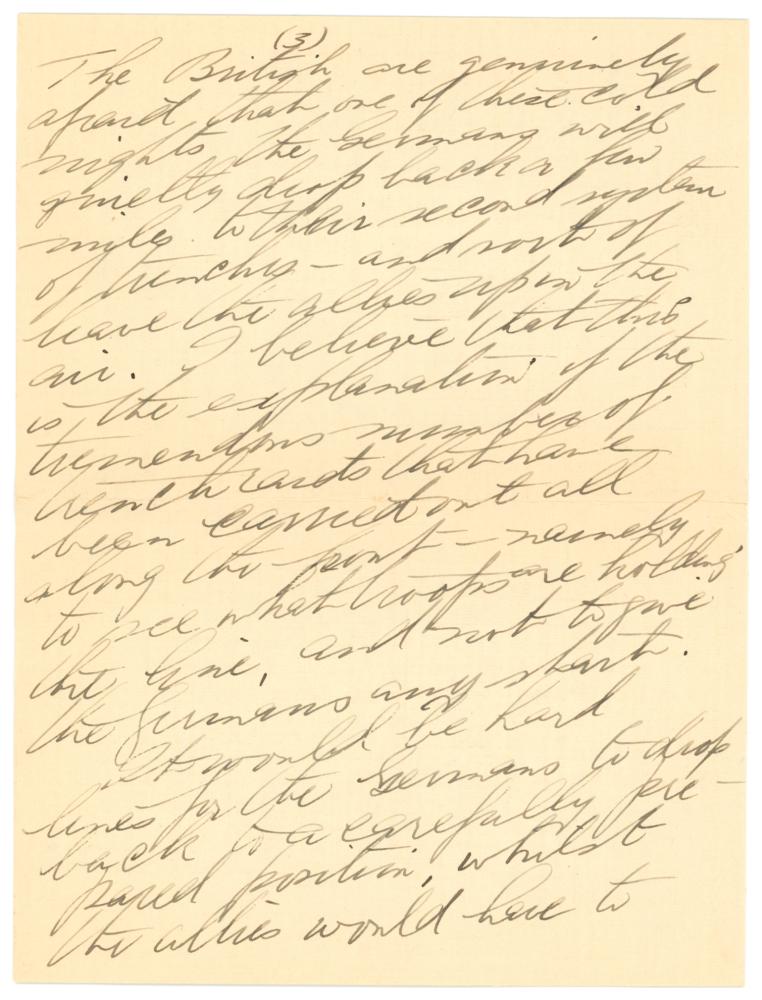 (3)
The British are genuinely
afraid that one of these cold
nights the Germans will
quietly drop back a few
miles to their second system
of trenches – and sort of
leave the allies up in the
air. I believe that this
is the explanation of the
tremendous number of
trench raids that have
been carried out all
along the front – namely
to see what troops are holding
the line, and not to give
the Germans any start.
It would be hard
lines for the Germans to drop
back to a carefully pre-
pared position, whilst
the allies would have to